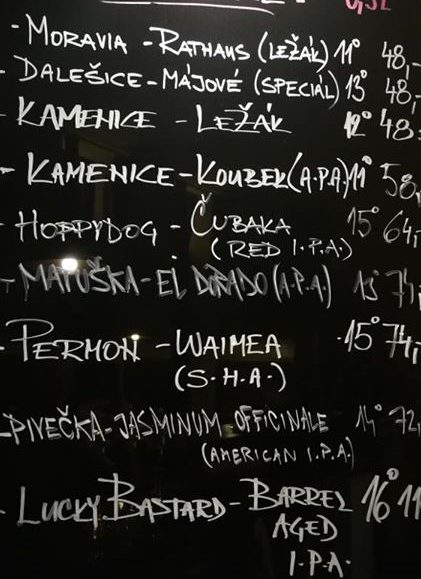 - MORAVIA - RATHAUS (LEŽÁK) 11° 48,-
- DALEŠICE - MÁJOVÉ (SPECIÁL) 13° 48,-
- KAMENICE - LEŽÁK 12° 48,-
- KAMENICE - KOUBEK (A.P.A) 11° 58,
- HOPPYDOG - ČUBAKA 15° 64,
(RED I.P.A.)
- MATUŠKA - EL DORADO (A.P.A.) 13° 74,
- PERMON - WAIMEA 15° 74,
(S.H.A.)
- PIVEČKA - JASMINUM OFFICINALE 14° 72,
(AMERICAN I.P.A.)
- LUCKY BASTARD - BARREL 16° 11
AGED
I.P.A.